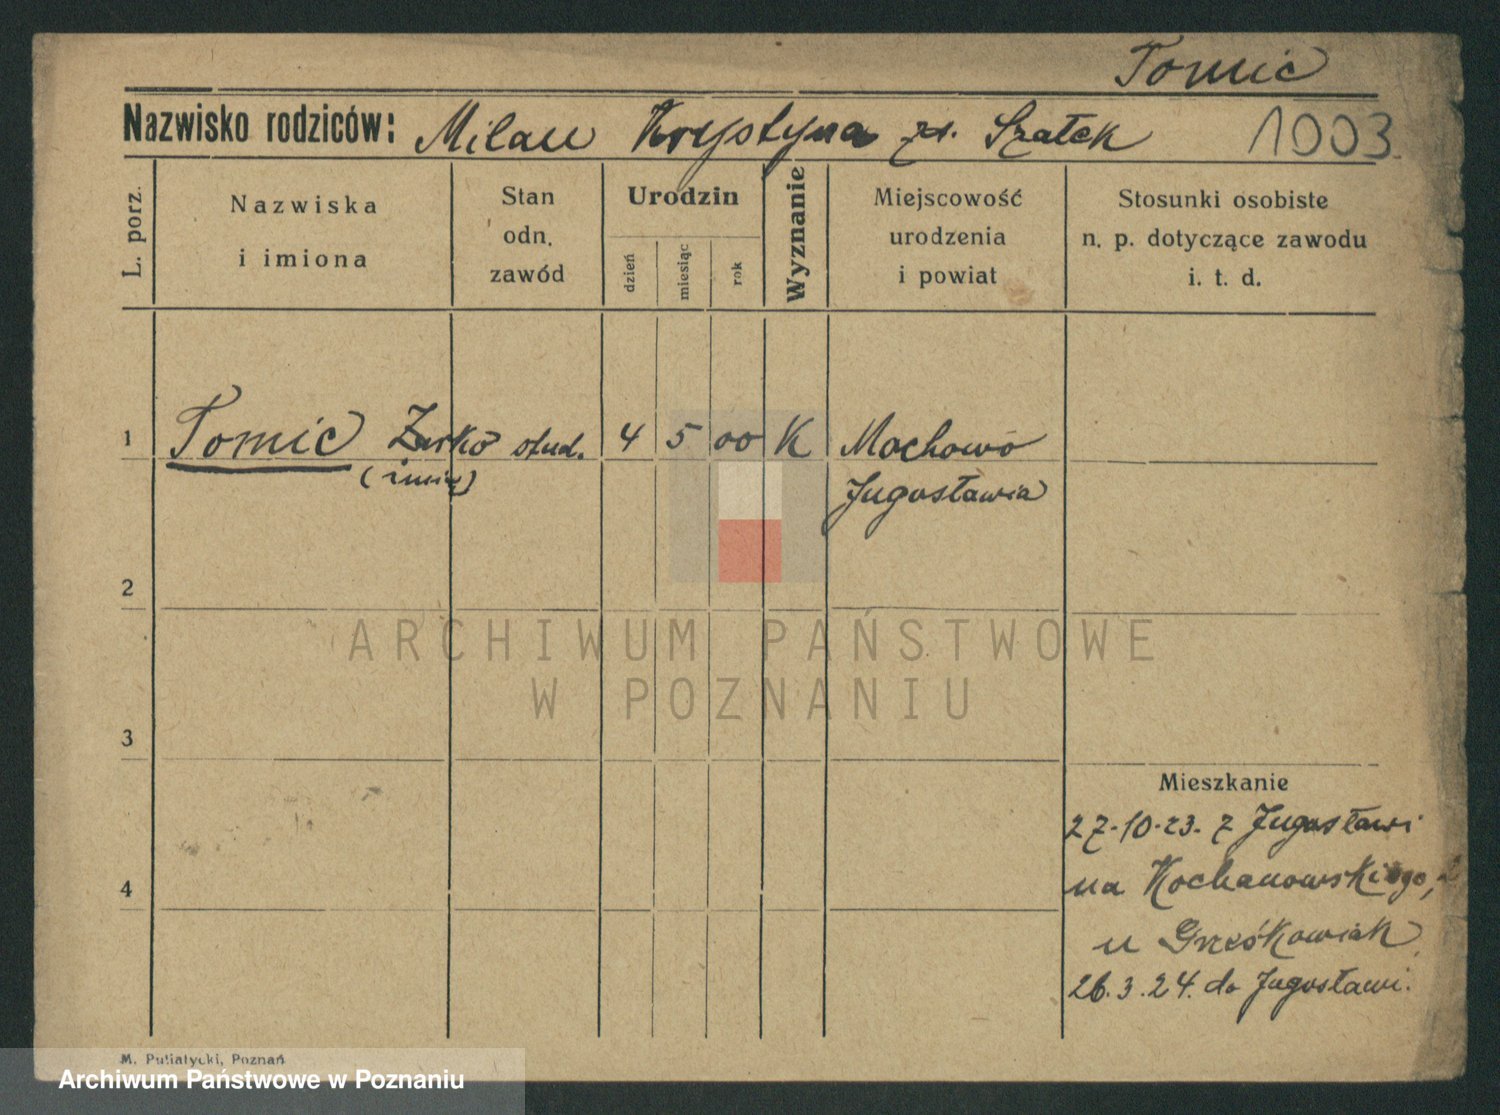 Tomic
Nazwisko rodziców: Milan Krystyna zd. Szałek 1003.
L. porz.
Nazwiska
i imiona
Stan
odn.
zawód
Urodzin
dzień
miesiąc
rok
Wyznanie
Miejscowość
urodzenia
i powiat
Stosunki osobiste
n. p. dotyczące zawodu
i. t. d.
1 Tomic Żarko stud. 4 5 00 K Mochowo
(imię) Jugosławia
2
ARCHIWUM PAŃSTWOWE
W POZNANIU
3
Mieszkanie
27-10-23. z Jugosławi
4 na Kochanowskiego,
u Grześkowiak
26.3.24. do Jugosławi.
M. Putiatycki, Poznań
Archiwum Państwowe w Poznaniu